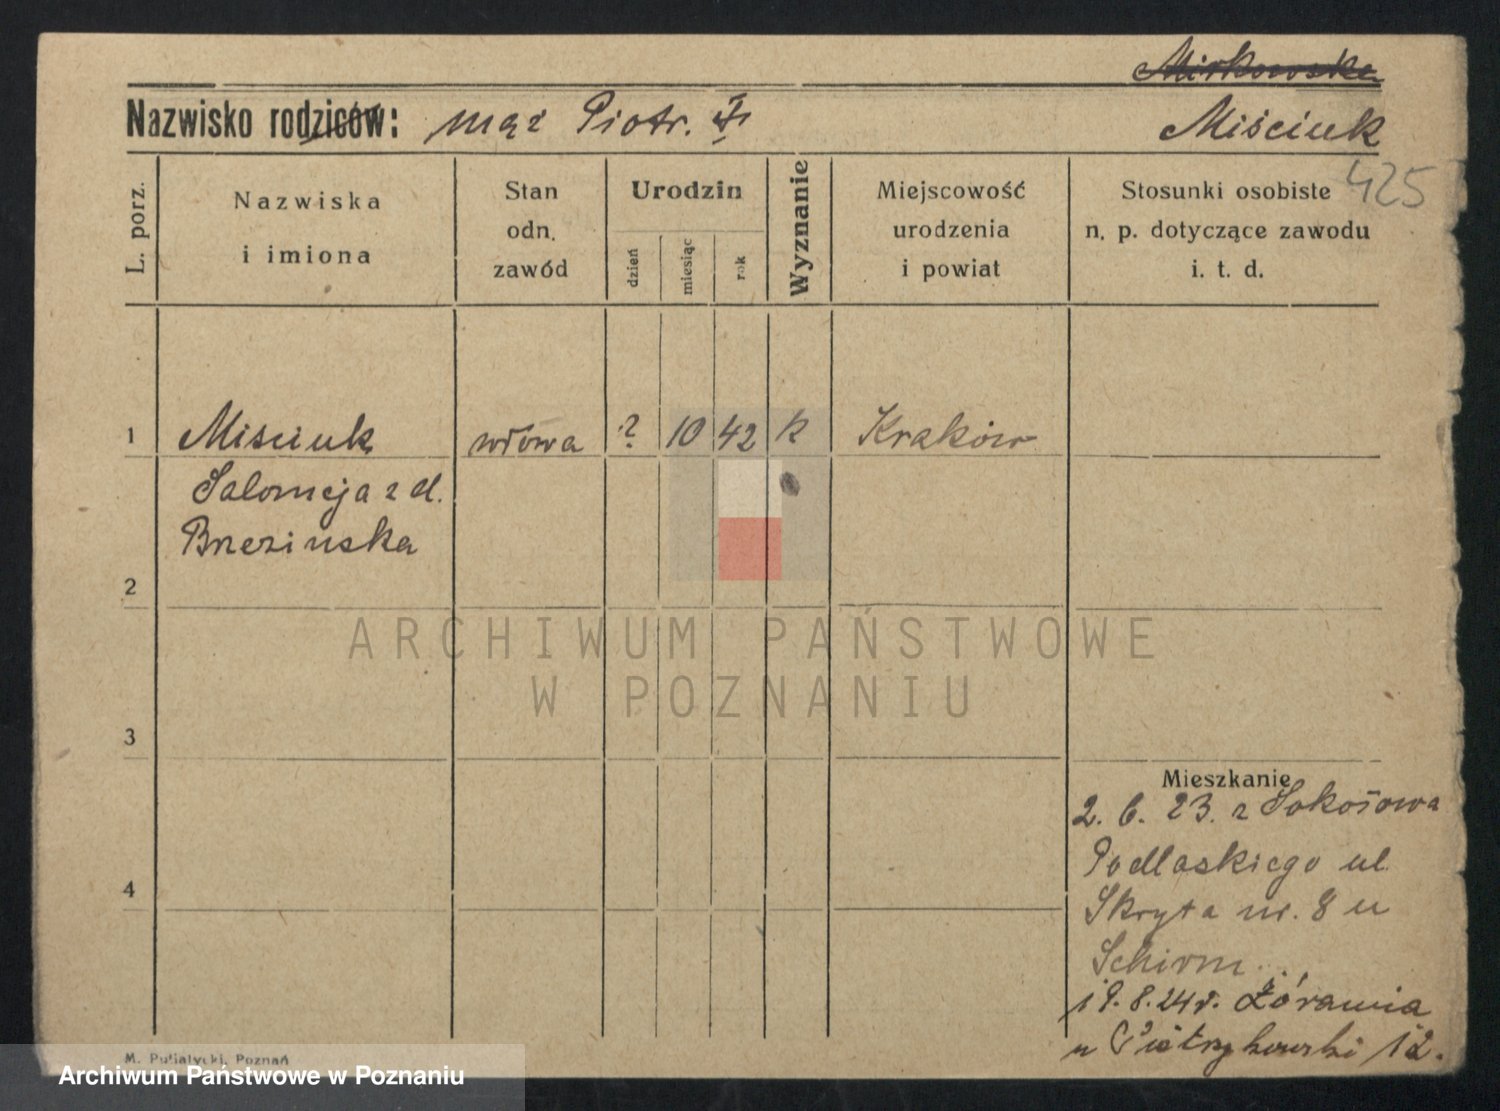 Mirkowska
Nazwisko rodziców: mąż Piotr. Miściuk
425
L. porz.
Nazwiska
i imiona
Stan
odn.
zawód
Urodzin
dzień
miesiąc
rok
Wyznanie
Miejscowość
urodzenia
i powiat
Stosunki osobiste
n. p. dotyczące zawodu
i. t. d.
1 Miściuk wdowa ? 10 42 k Kraków
Salomeja z d.
Brzezińska
2
ARCHIWUM PAŃSTWOWE
W POZNANIU
3
Mieszkanie
2. 6. 23. z Sokołowa
Podlaskiego ul.
4
Skryta nr. 8 u
Schirm
19. 8. 24 r. Żórawia
u Piątrzykowski 12.
M. Putiatycki, Poznań
Archiwum Państwowe w Poznaniu